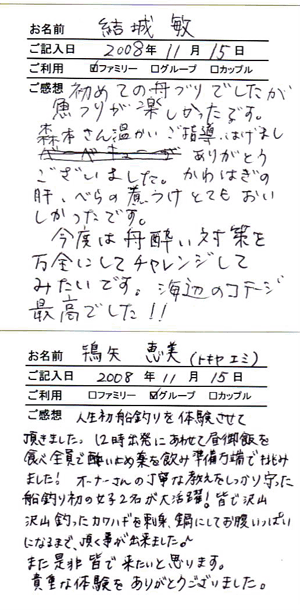 お名前 結城 敏
ご記入日 2008年 11月 15日
ご利用 ☑ファミリー □グループ □カップル
ご感想 初めての舟づりでしたが
魚つりが楽しかったです。
森本さん温かいご指導、はげまし
ありがとう
ございました。かわはぎの
肝、べらの煮つけとてもおい
しかったです。
今度は舟酔い対策を
万全にしてチャレンジして
みたいです。海辺のコテージ
最高でした!!
お名前 鴇矢 恵美(トキヤ エミ)
ご記入日 2008 年 11月 15日
ご利用 □ファミリー ☑グループ □カップル
ご感想 人生初船釣りを体験させて
頂きました。12時出発にあわせて昼御飯を
食べ全員で酔い止め薬を飲み準備万端で挑み
ました! オーナーさんの丁寧な教えをしっかり守った
船釣り初の女子2名が大活躍!皆で沢山
沢山釣ったカワハギを刺身、鍋にしてお腹いっぱい
になるまで、頂く事が出来ました♪
また是非皆で来たいと思います。
貴重な体験をありがとうございました。